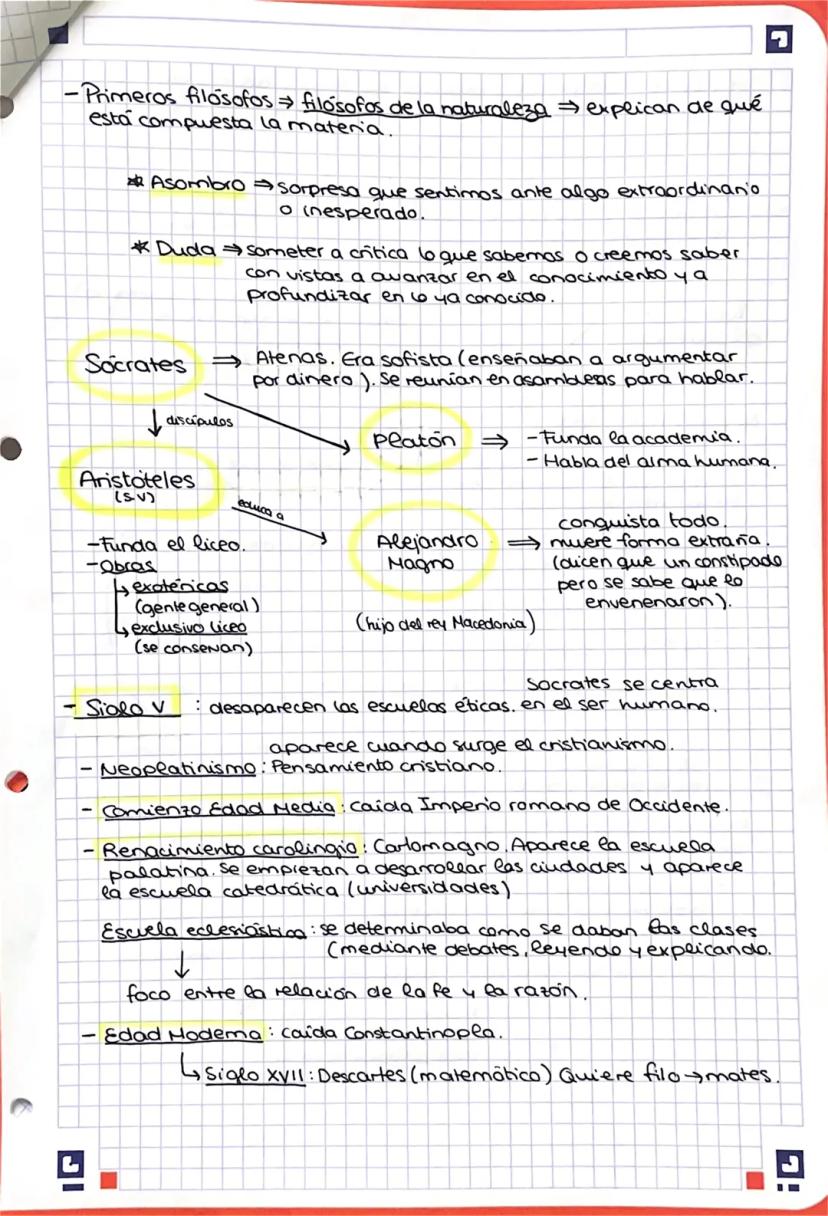 - Primeros filósofos ⇒ filósofos de la naturaleza ⇒ explican de qué
está compuesta la materia.
* Asombro ⇒ sorpresa que sentimos ante algo extraordinario
o inesperado.
* Duda ⇒ someter a crítica lo que sabemos o creemos saber
con vistas a avanzar en el conocimiento y a
profundizar en lo ya conocido.
Sócrates ⇒ Atenas. Era sofista (enseñaban a argumentar
por dinero). Se reunían en asambleas para hablar.
↓ discípulos
Platón ⇒ - Funda la academia.
- Habla del alma humana.
Aristóteles
(S.V)
educa a
- Funda el liceo.
- Obras
↳ exotéricas
(gente general)
↳ exclusivo liceo
(se conservan)
Alejandro
Magno
(hijo del rey Macedonia)
⇒ conquista todo.
muere forma extraña.
(dicen que un constipado
pero se sabe que lo
envenenaron).
Socrates se centra
- Siglo V : desaparecen las escuelas éticas. en el ser humano.
aparece cuando surge el cristianismo.
- Neoplatinismo : Pensamiento cristiano.
- Comienzo Edad Media : caída Imperio romano de Occidente.
- Renacimiento carolingio : Carlomagno. Aparece la escuela
palatina. Se empiezan a desarrollar las ciudades y aparece
la escuela catedrática (universidades)
Escuela eclesiástica : se determinaba como se daban las clases
(mediante debates, leyendo y explicando.
↓
foco entre la relación de la fe y la razón.
- Edad Moderna : caída Constantinopla.
↳ Siglo XVII : Descartes (matemático) Quiere filo → mates.